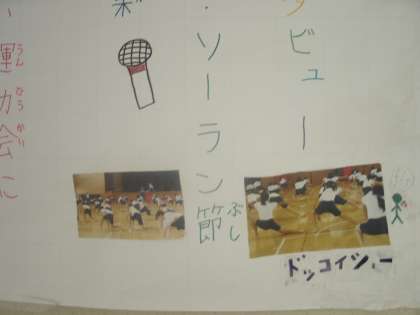 タビュー
・ソーラン節
ぶし
運動会に
うんどうかい
ドッコイショー